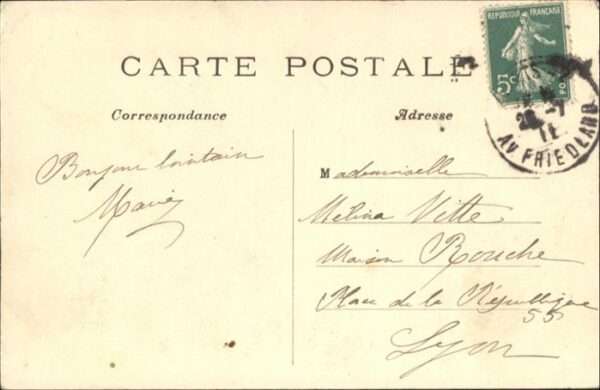 REPUBLIQUE FRANÇAISE
5c
PO
CARTE POSTALE
Correspondance
Adresse
7
11
AV. FRIEDLAND
Bonjour lointain
Marie
Mademoiselle
Melina Vitte
Maison Rouche
Place de la République
55
Lyon